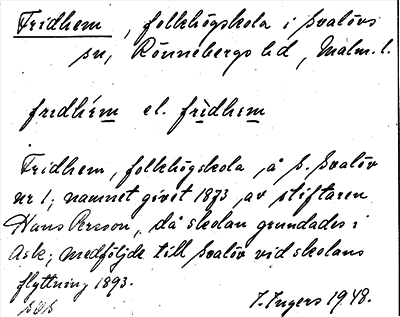 Fridhem, folkhögskola i Svalövs
sn, Rönnebergs hd, Malm. l.
fredhém el. frìdhem
Fridhem, folkhögskola, å s. Svalöv
nr 1; namnet givet 1873, av stiftaren
Hans Persson, då skolan grundades i
Ask; medföljde till Svalöv vid skolans
flyttning 1893.
I. Ingers 1948.